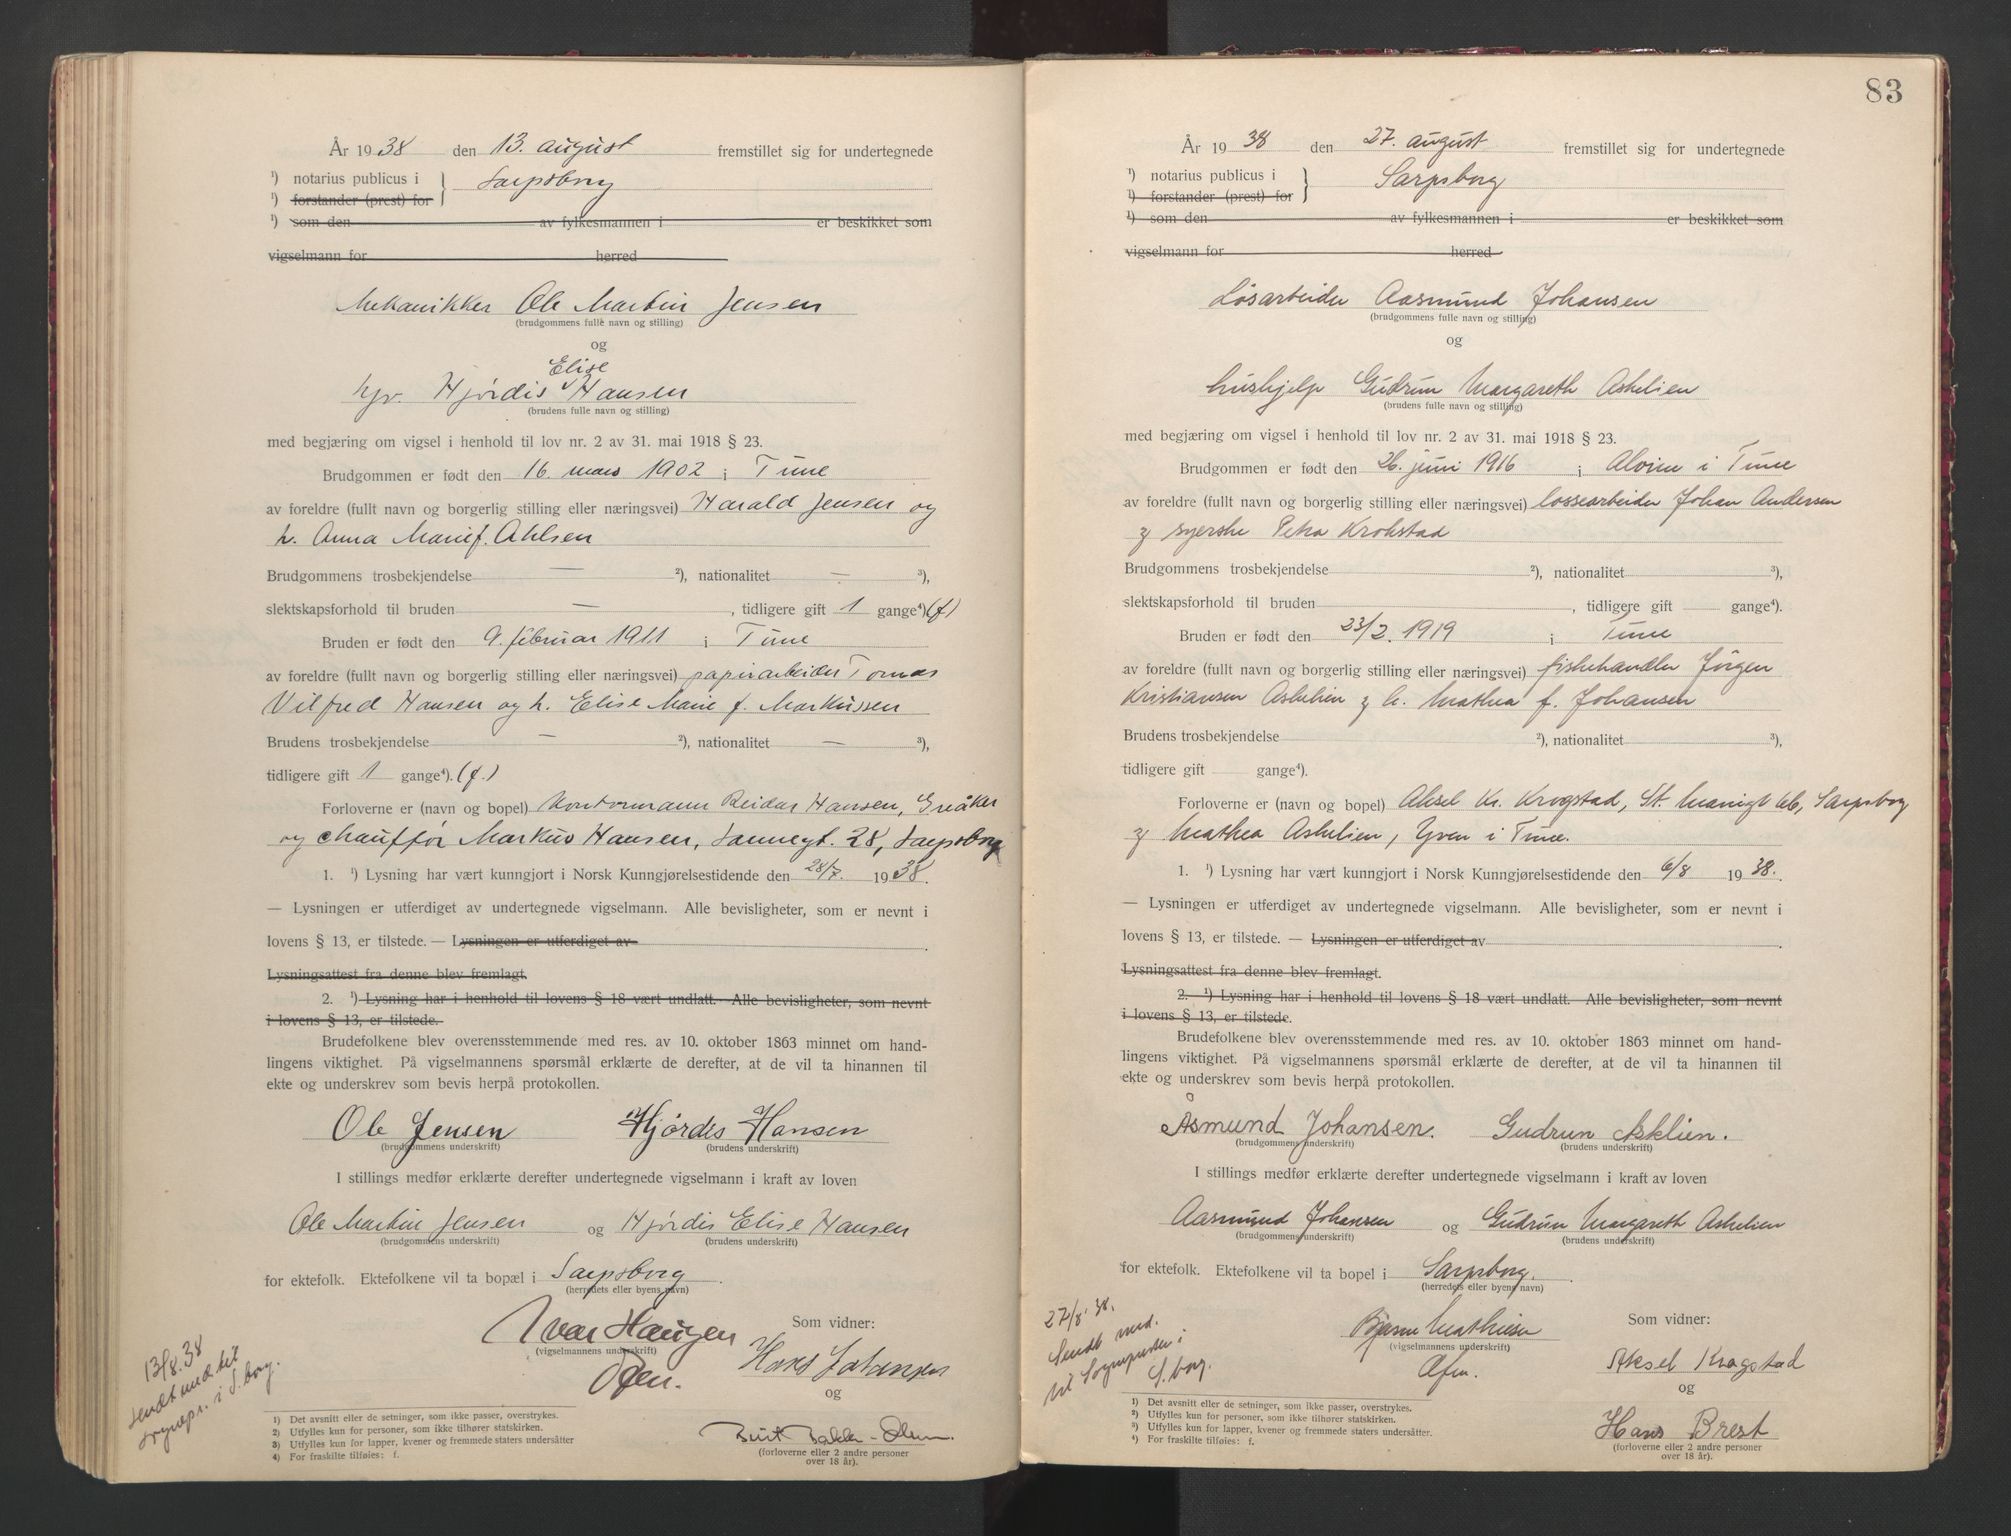 År 1938 den 13. august fremstillet sig for undertegnede
¹) notarius publicus i } Sarpsborg
¹) forstander (prest) for
¹) som den av fylkesmannen i er beskikket som
vigselmann for herred
Mekanikker Ole Martin Jensen
(brudgommens fulle navn og stilling)
og
Elise
hjv. Hjørdis v Hansen
(brudens fulle navn og stilling)
med begjæring om vigsel i henhold til lov nr. 2 av 31. mai 1918 § 23.
Brudgommen er født den 16. mars 1902 i Tune
av foreldre (fullt navn og borgerlig stilling eller næringsvei) Harald Jensen og
h. Anna Marie f. Ahlsen
Brudgommens trosbekjendelse — ²), nationalitet — ³),
slektskapsforhold til bruden —, tidligere gift 1 gange⁴) (f)
Bruden er født den 9. februar 1911 i Tune
av foreldre (fullt navn og borgerlig stilling eller næringsvei) papirarbeider Tomas
Vilfred Hansen og h. Elise Marie f. Markussen
Brudens trosbekjendelse — ²), nationalitet — ³),
tidligere gift 1 gange⁴). (f.)
Forloverne er (navn og bopel) Kontormann Reidar Hansen, Greåker
og chauffør Markus Hansen, Sannesgt. 28, Sarpsborg
1. ¹) Lysning har vært kunngjort i Norsk Kunngjørelsestidende den 28/7. 1938.
— Lysningen er utferdiget av undertegnede vigselmann. Alle bevisligheter, som er nevnt i
lovens § 13, er tilstede. — Lysningen er utferdiget av .
Lysningsattest fra denne blev fremlagt.
2. ¹) Lysning har i henhold til lovens § 18 vært undlatt. Alle bevisligheter, som nevnt
i lovens § 13, er tilstede.
Brudefolkene blev overensstemmende med res. av 10. oktober 1863 minnet om hand-
lingens viktighet. På vigselmannens spørsmål erklærte de derefter, at de vil ta hinannen til
ekte og underskrev som bevis herpå protokollen.
Ole Jensen Hjørdis Hansen
(brudgommens underskrift) (brudens underskrift)
I stillings medfør erklærte derefter undertegnede vigselmann i kraft av loven
Ole Martin Jensen og Hjørdis Elise Hansen
(brudgommens underskrift) (brudens underskrift)
for ektefolk. Ektefolkene vil ta bopæl i Sarpsborg.
(herredets eller byens navn)
Ivar Haugen Som vidner:
(vigselmannens underskrift)
Hans Johansen
og
(forloverne eller 2 andre personer
over 18 år).
13/8.38
sendt und til
sognepr. i S.borg.
1) Det avsnitt eller de setninger, som ikke passer, overstrykes.
2) Utfylles kun for personer, som ikke tilhører statskirken.
3) Utfylles kun for lapper, kvener og fremmede staters undersåtter
4) For fraskilte tilføies: f.
83
År 1938 den 27. august fremstillet sig for undertegnede
¹) notarius publicus i } Sarpsborg
¹) forstander (prest) for
¹) som den av fylkesmannen i er beskikket som
vigselmann for herred
Løsarbeider Aasmund Johansen
(brudgommens fulle navn og stilling)
og
hushjelp Gudrun Margareth Askelien
(brudens fulle navn og stilling)
med begjæring om vigsel i henhold til lov nr. 2 av 31. mai 1918 § 23.
Brudgommen er født den 26. juni 1916 i Alvim i Tune
av foreldre (fullt navn og borgerlig stilling eller næringsvei) lossearbeider Johan Andersen
og syerske Petra Krohstad
Brudgommens trosbekjendelse ²), nationalitet ³),
slektskapsforhold til bruden , tidligere gift gange⁴).
Bruden er født den 23/2. 1919 i Tune
av foreldre (fullt navn og borgerlig stilling eller næringsvei) fiskehandler Jörgen
Kristiansen Askelien og h. Mathea f. Johansen
Brudens trosbekjendelse ²), nationalitet ³),
tidligere gift gange⁴).
Forloverne er (navn og bopel) Aksel Kr. Krogstad, St. Mariegt 66, Sarpsborg
og Mathea Askelien, Yven i Tune.
1. ¹) Lysning har vært kunngjort i Norsk Kunngjørelsestidende den 6/8 1938.
— Lysningen er utferdiget av undertegnede vigselmann. Alle bevisligheter, som er nevnt i
lovens § 13, er tilstede. — Lysningen er utferdiget av .
Lysningsattest fra denne blev fremlagt.
2. ¹) Lysning har i henhold til lovens § 18 vært undlatt. Alle bevisligheter, som nevnt
i lovens § 13, er tilstede.
Brudefolkene blev overensstemmende med res. av 10. oktober 1863 minnet om hand-
lingens viktighet. På vigselmannens spørsmål erklærte de derefter, at de vil ta hinannen til
ekte og underskrev som bevis herpå protokollen.
Åsmund Johansen. Gudrun Asklien.
(brudgommens underskrift) (brudens underskrift)
I stillings medfør erklærte derefter undertegnede vigselmann i kraft av loven
Aasmund Johansen og Gudrun Margareth Askelien
(brudgommens underskrift) (brudens underskrift)
for ektefolk. Ektefolkene vil ta bopel i Sarpsborg.
(herredets eller byens navn)
Bjarne Mathiesen Som vidner:
(vigselmannens underskrift)
Aksel Krogstad
og
Hans Brest
(forloverne eller 2 andre personer
over 18 år).
27/8.38.
Sendt und.
til Sognepresten i
S.borg.
1) Det avsnitt eller de setninger, som ikke passer, overstrykes.
2) Utfylles kun for personer, som ikke tilhører statskirken.
3) Utfylles kun for lapper, kvener og fremmede staters undersåtter.
4) For fraskilte tilføies: f.